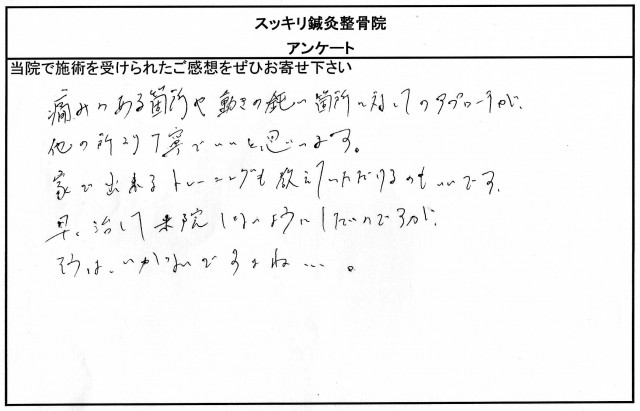 スッキリ鍼灸整骨院
アンケート
当院で施術を受けられたご感想をぜひお寄せ下さい
痛みのある箇所や動きの鈍い箇所に対してのアプローチが、
他の所より丁寧でいいと思います。
家で出来るトレーニングも教えていただけるのもいいです。
早く治して来院しないようにしたいのですが、
そうは、いかないですよね…。